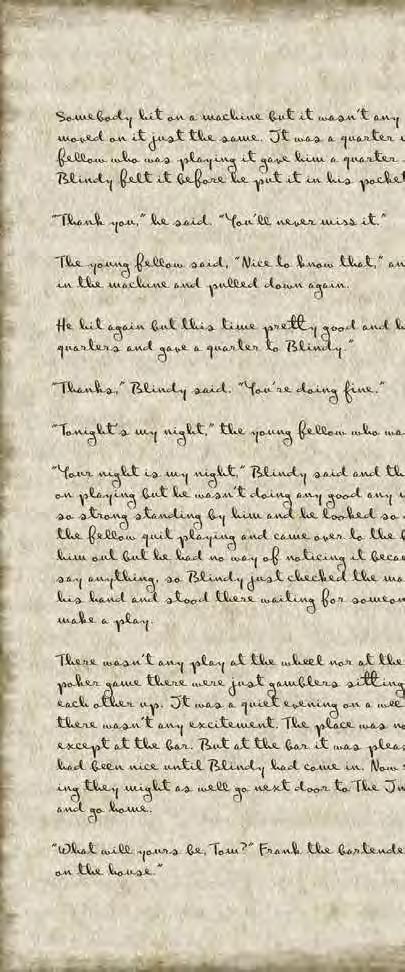 Somebody hit on a machine but it wasn't any
moved on it just the same. It was a quarter
fellow who was playing it gave him a quarter
Blindy felt it before he put it in his pocket
"Thank you," he said. "You'll never miss it."
The young fellow said, "Nice to know that," an
in the machine and pulled down again.
He hit again but this time pretty good and h
quarters and gave a quarter to Blindy."
"Thanks," Blindy said. "You're doing fine."
"Tonight's my night," the young fellow who wa
"Your night is my night," Blindy said and th
on playing but he wasn't doing any good any
so strong standing by him and he looked so
the fellow quit playing and came over to the b
him out but he had no way of noticing it becau
say anything, so Blindy just checked the ma
his hand and stood there waiting for someon
make a play.
There wasn't any play at the wheel nor at the
poker game there were just gamblers sitting
each other up. It was a quiet evening on a wee
there wasn't any excitement. The place was no
except at the bar. But at the bar it was pleas
had been nice until Blindy had come in. Now
ing they might as well go next door to The In
and go home.
"What will yours be, Tom?" Frank the bartende
on the house."